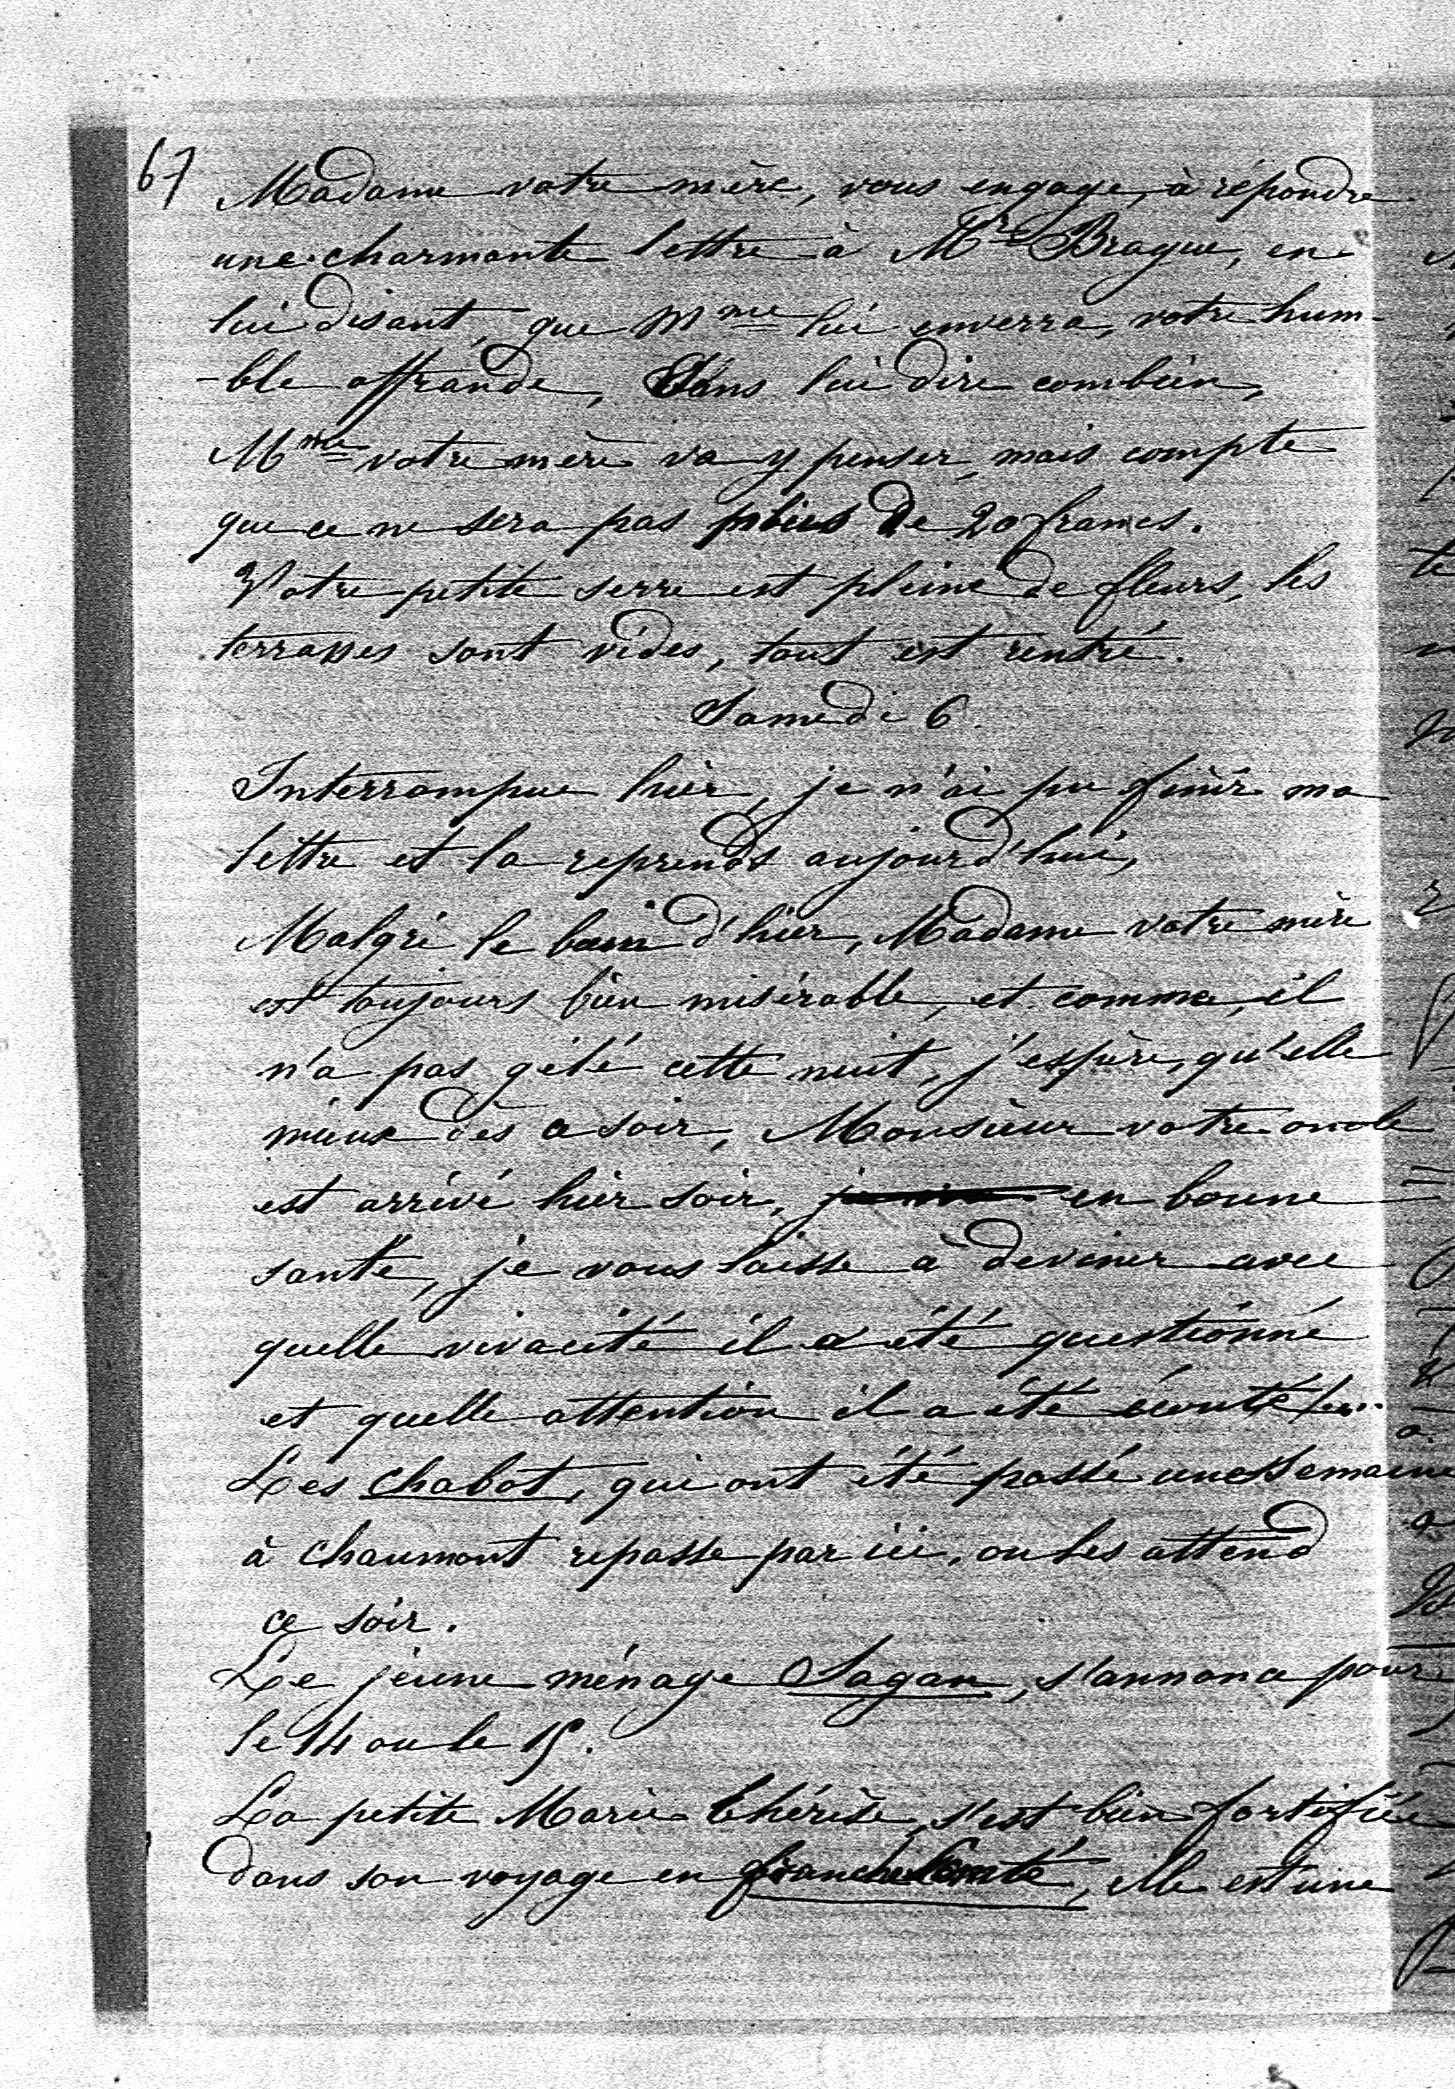 67
Madame votre mère, vous engage, à répondre
une charmante lettre à Mr Brague, en
lui disant, que Mme lui enverra, votre hum-
-ble offrande, sans lui dire combien,
Mme votre mère va y penser, mais compte
que ce ne sera pas plus de 20 francs.
Votre petite serre est pleine de fleurs, les
terrasses sont vides, tout est rentré.
Samedi 6.
Interrompue hier, je n'ai pu finir ma
lettre et la reprends aujourd'hui,
Malgré le bain d'hier, Madame votre mère
est toujours bien misérable, et comme, il
n'a pas gelé cette nuit, j'espère, qu'elle
mieux dès ce soir, Monsieur votre oncle
est arrivé hier soir, en bonne
santé, je vous laisse à deviner avec
quelle vivacité il a été questionné
et quelle attention il a été écouté
Les Chabot, qui ont été passé une semaine
à Chaumont repasse par ici, on les attend
ce soir.
Le jeune ménage Sagan, s'annonce pour
le 14 ou le 15.
La petite Marie Thérèse, s'est bien fortifiée
dans son voyage en franche Comté, elle est une